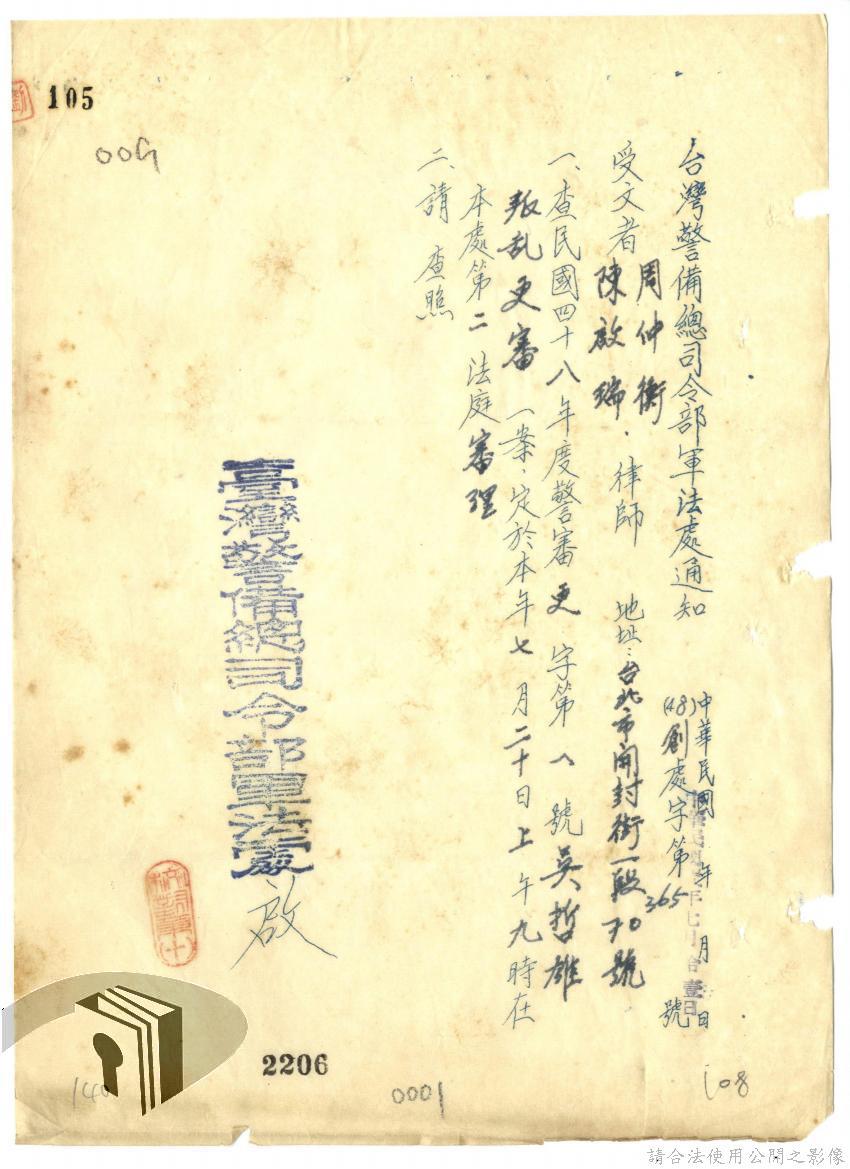 台灣警備總司令部軍法處通知
中華民國 年 月 日
(48)創處字第365號
受文者 周仲衡 陳啟瑞 律師 地址：台北市開封街一段70號
一、查民國四十八年度警審更字第八號吳哲雄
叛乱更審一案，定於本年七月二十日上午九時在
本處第二法庭審理
二、請 查照
臺灣警備總司令部軍法處 啟
105
2206
0001
108
140
請合法使用公開之影像